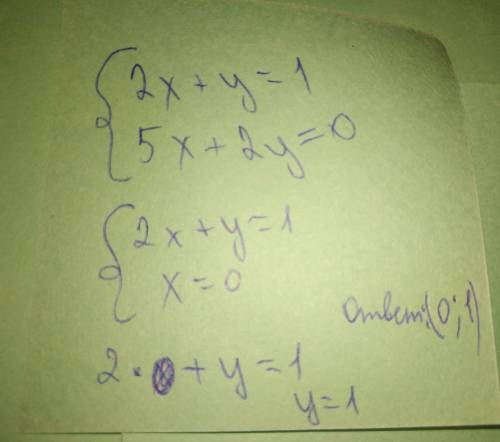 2x + y = 1
5x + 2y = 0
2x + y = 1
x = 0
ответ: (0; 1)
2 · + y = 1
y = 1